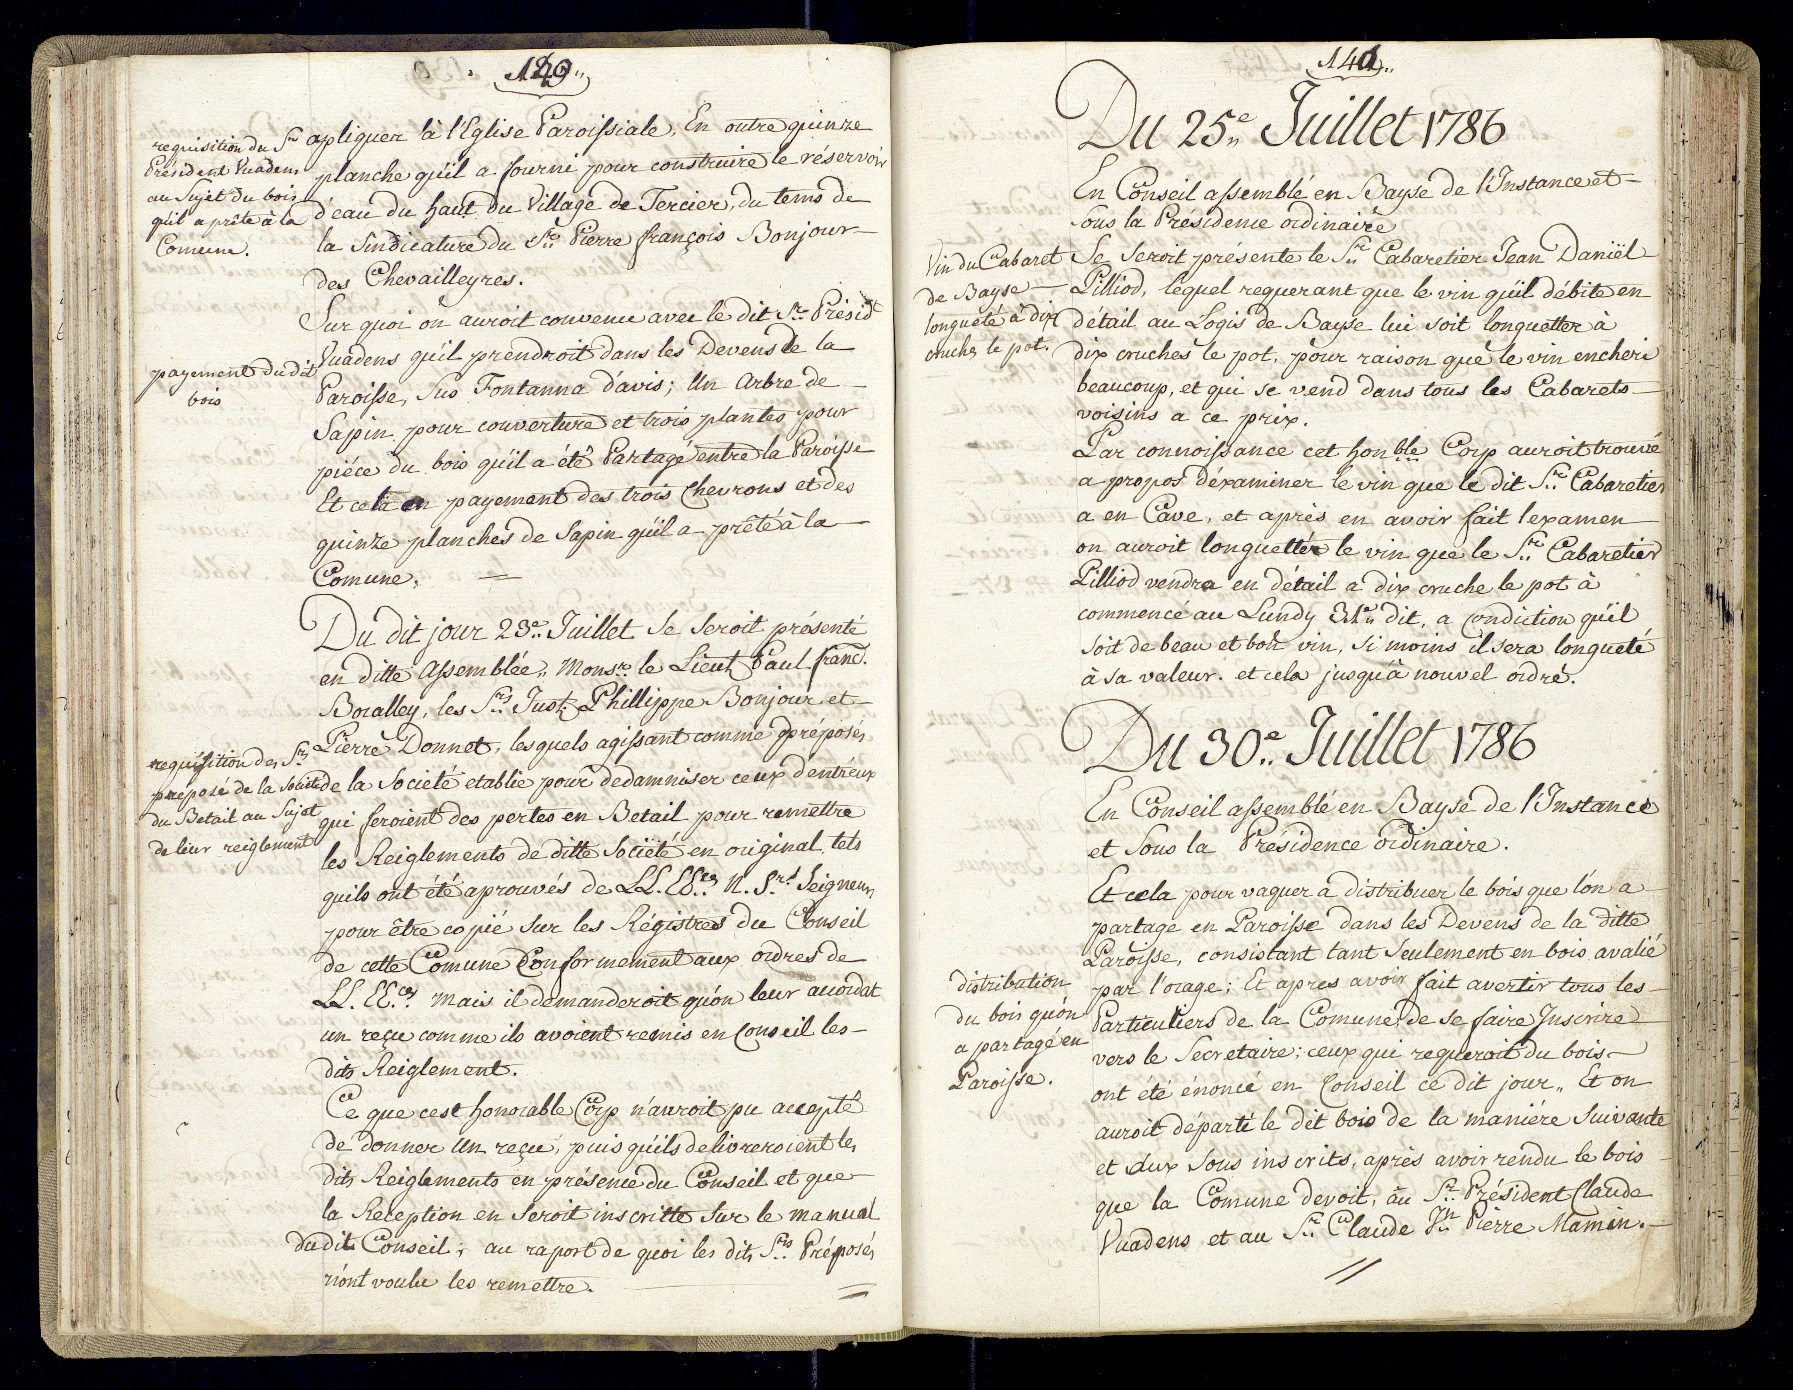 requisition du Sr.
Président Vuadens
au Sujet du bois
qu'il a prêté à la
Comune.
apliquer à l'Eglise Paroissiale, En outre quinze
planche qu'il a fourni pour construire le réservoir
d'eau du haut du Village de Tercier, du tems de
la Sindicature du Sr. Pierre françois Bonjour
des Chevailleyres.
Sur quoi on auroit convenu avec le dit Sr. Présidt
Vuadens qu'il prendroit dans les Devens de la
payement du dit
bois
Paroisse, sus Fontanna d'avis; Un Arbre de
Sapin pour couverture et trois plantes pour
piéce du bois qu'il a été Partagé entre la Paroisse
Et cela en payement des trois Chevrons et des
quinze planches de Sapin qu'il a prêté à la
Comune.
Du dit jour 23e. Juillet Se Seroit présenté
en ditte Assemblée, Monsr. le Lieut. Paul franc.
Boralley, les Srs. Just. Phillippe Bonjour et
Pierre Donnet, lesquels agissant comme préposés
requisition des Srs.
préposé de la Societé
du Betail au Sujet
de leur reiglement
de la Societé etablie pour dedamniser ceux d'entreux
qui feroient des pertes en Betail pour remettre
les Reiglements de ditte Societé en original tels
quils ont été aprouvés de LL.EE.ces N. S.rs Seigneurs
pour être copié Sur les Régistres du Conseil
de cette Comune Conformement aux ordres de
LL.EE.ces mais il demanderoit qu'on leur accordat
un reçu comme ils avoient remis en Conseil les
dits Reiglement.
Ce que cest honorable Corp n'auroit pu accepté
de donner Un reçu, puis qu'ils delivreroient les
dits Reiglements en présence du Conseil et que
la Reception en Seroit inscritte Sur le manual
dudit Conseil; au raport de quoi les dits Srs. Préposés
n'ont voulu les remettre.
Du 25e. Juillet 1786
En Conseil assemblé en Bayse de l'Instance et
sous la Présidence ordinaire
Vin du Cabaret
de Bayse
longueté à dix
cruches le pot.
Se Seroit présente le Sr. Cabaretier Jean Daniël
Pilliod, lequel requerant que le vin qu'il débite en
détail au Logis de Bayse lui soit longuetter à
dix cruches le pot, pour raison que le vin encheri
beaucoup, et qui se vend dans tous les Cabarets
voisins a ce prix.
Par connoissance cet honble Corp auroit trouvé
a propos d'éxaminer le vin que le dit Sr. Cabaretier
a en Cave, et après en avoir fait l'examen
on auroit longuettér le vin que le Sr. Cabaretier
Pilliod vendra en détail a dix cruche le pot à
commencé au Lundy 31e. dit, a condiction qu'il
soit de beau et bon vin, si moins il sera longueté
à sa valeur. et cela jusqu'à nouvel ordre.
Du 30e. Juillet 1786
En Conseil assemblé en Bayse de l'Instance
et Sous la Présidence ordinaire.
Et cela pour vaguer a distribuer le bois que l'on a
partage en Paroisse dans les Devens de la ditte
Paroisse, consistant tant Seulement en bois avalié
distribution
du bois qu'on
a partagé en
Paroisse.
par l'orage; Et apres avoir fait avertir tous les
Particuliers de la Comune de se faire Inscrire
vers le Secretaire; ceux qui requeroit du bois
ont été énoncé en Conseil ce dit jour, Et on
auroit départi le dit bois de la maniére Suivante
et Aux Sous inscrits, après avoir rendu le bois
que la Comune devoit, au Sr. Président Claude
Vuadens et au Sr. Claude Jn. Pierre Mamin.